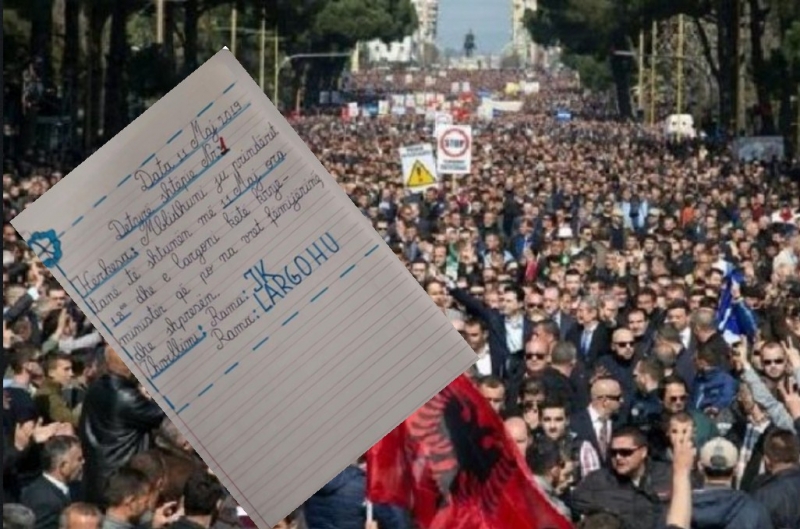 Data 11 Maj 2019
Detyrë shtëpie Nr.1
Kërkesa: Mblidhuni ju prindërit
tanë të shtunën më 11 Maj ora
18⁰⁰ dhe e largoni këtë krye-
ministër që po na vret fëmijërinë,
dhe shpresën.
Zhvillimi: Rama: IK
Rama: LARGOHU
STOP